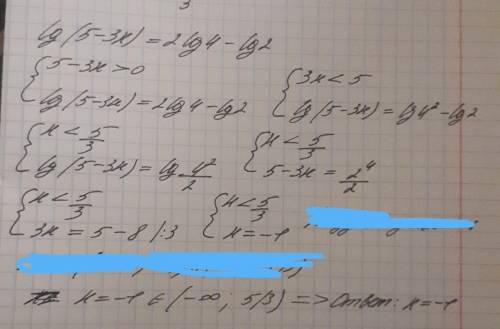 lg(5-3x) = 2lg4 - lg2
{5-3x>0 {3x<5
{lg(5-3x) = 2lg4 - lg2 {lg(5-3x) = lg4² - lg2
{x < 5/3 {x < 5/3
{lg(5-3x) = lg 4²/2 {5-3x = 2⁴/2
{x < 5/3 {x < 5/3
{3x = 5-8 |:3 {x = -1
x = -1 ∈ (-∞; 5/3) => Ответ: x = -1